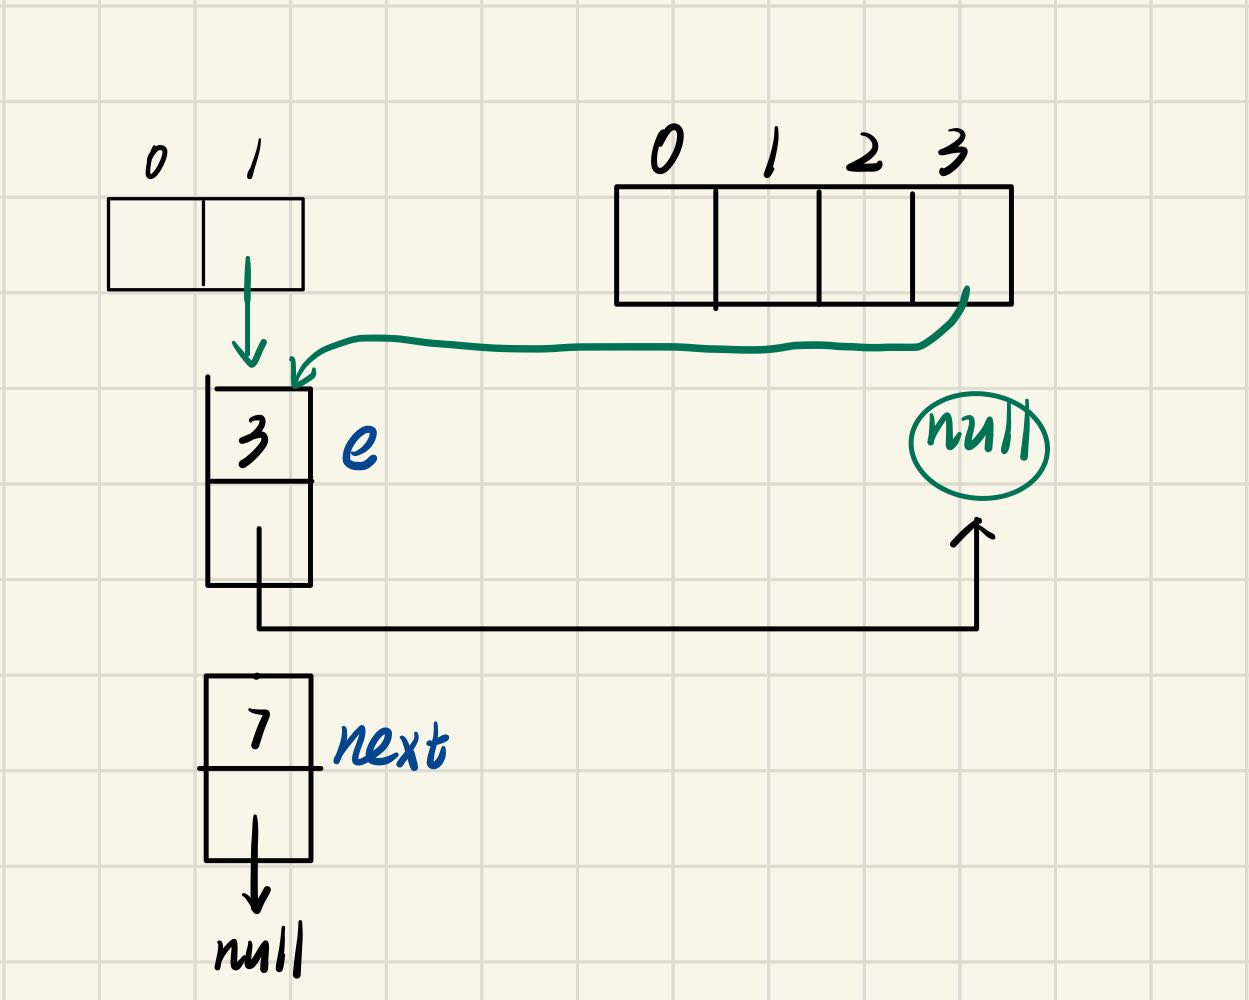 0 1
0 1 2 3
3 e
null
7 next
null